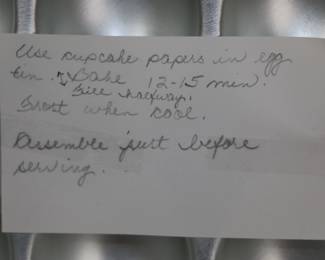 Use cupcake papers in egg
tin. Bake 12-15 min.
Fill halfway.
Frost when cool.
Assemble just before
serving.